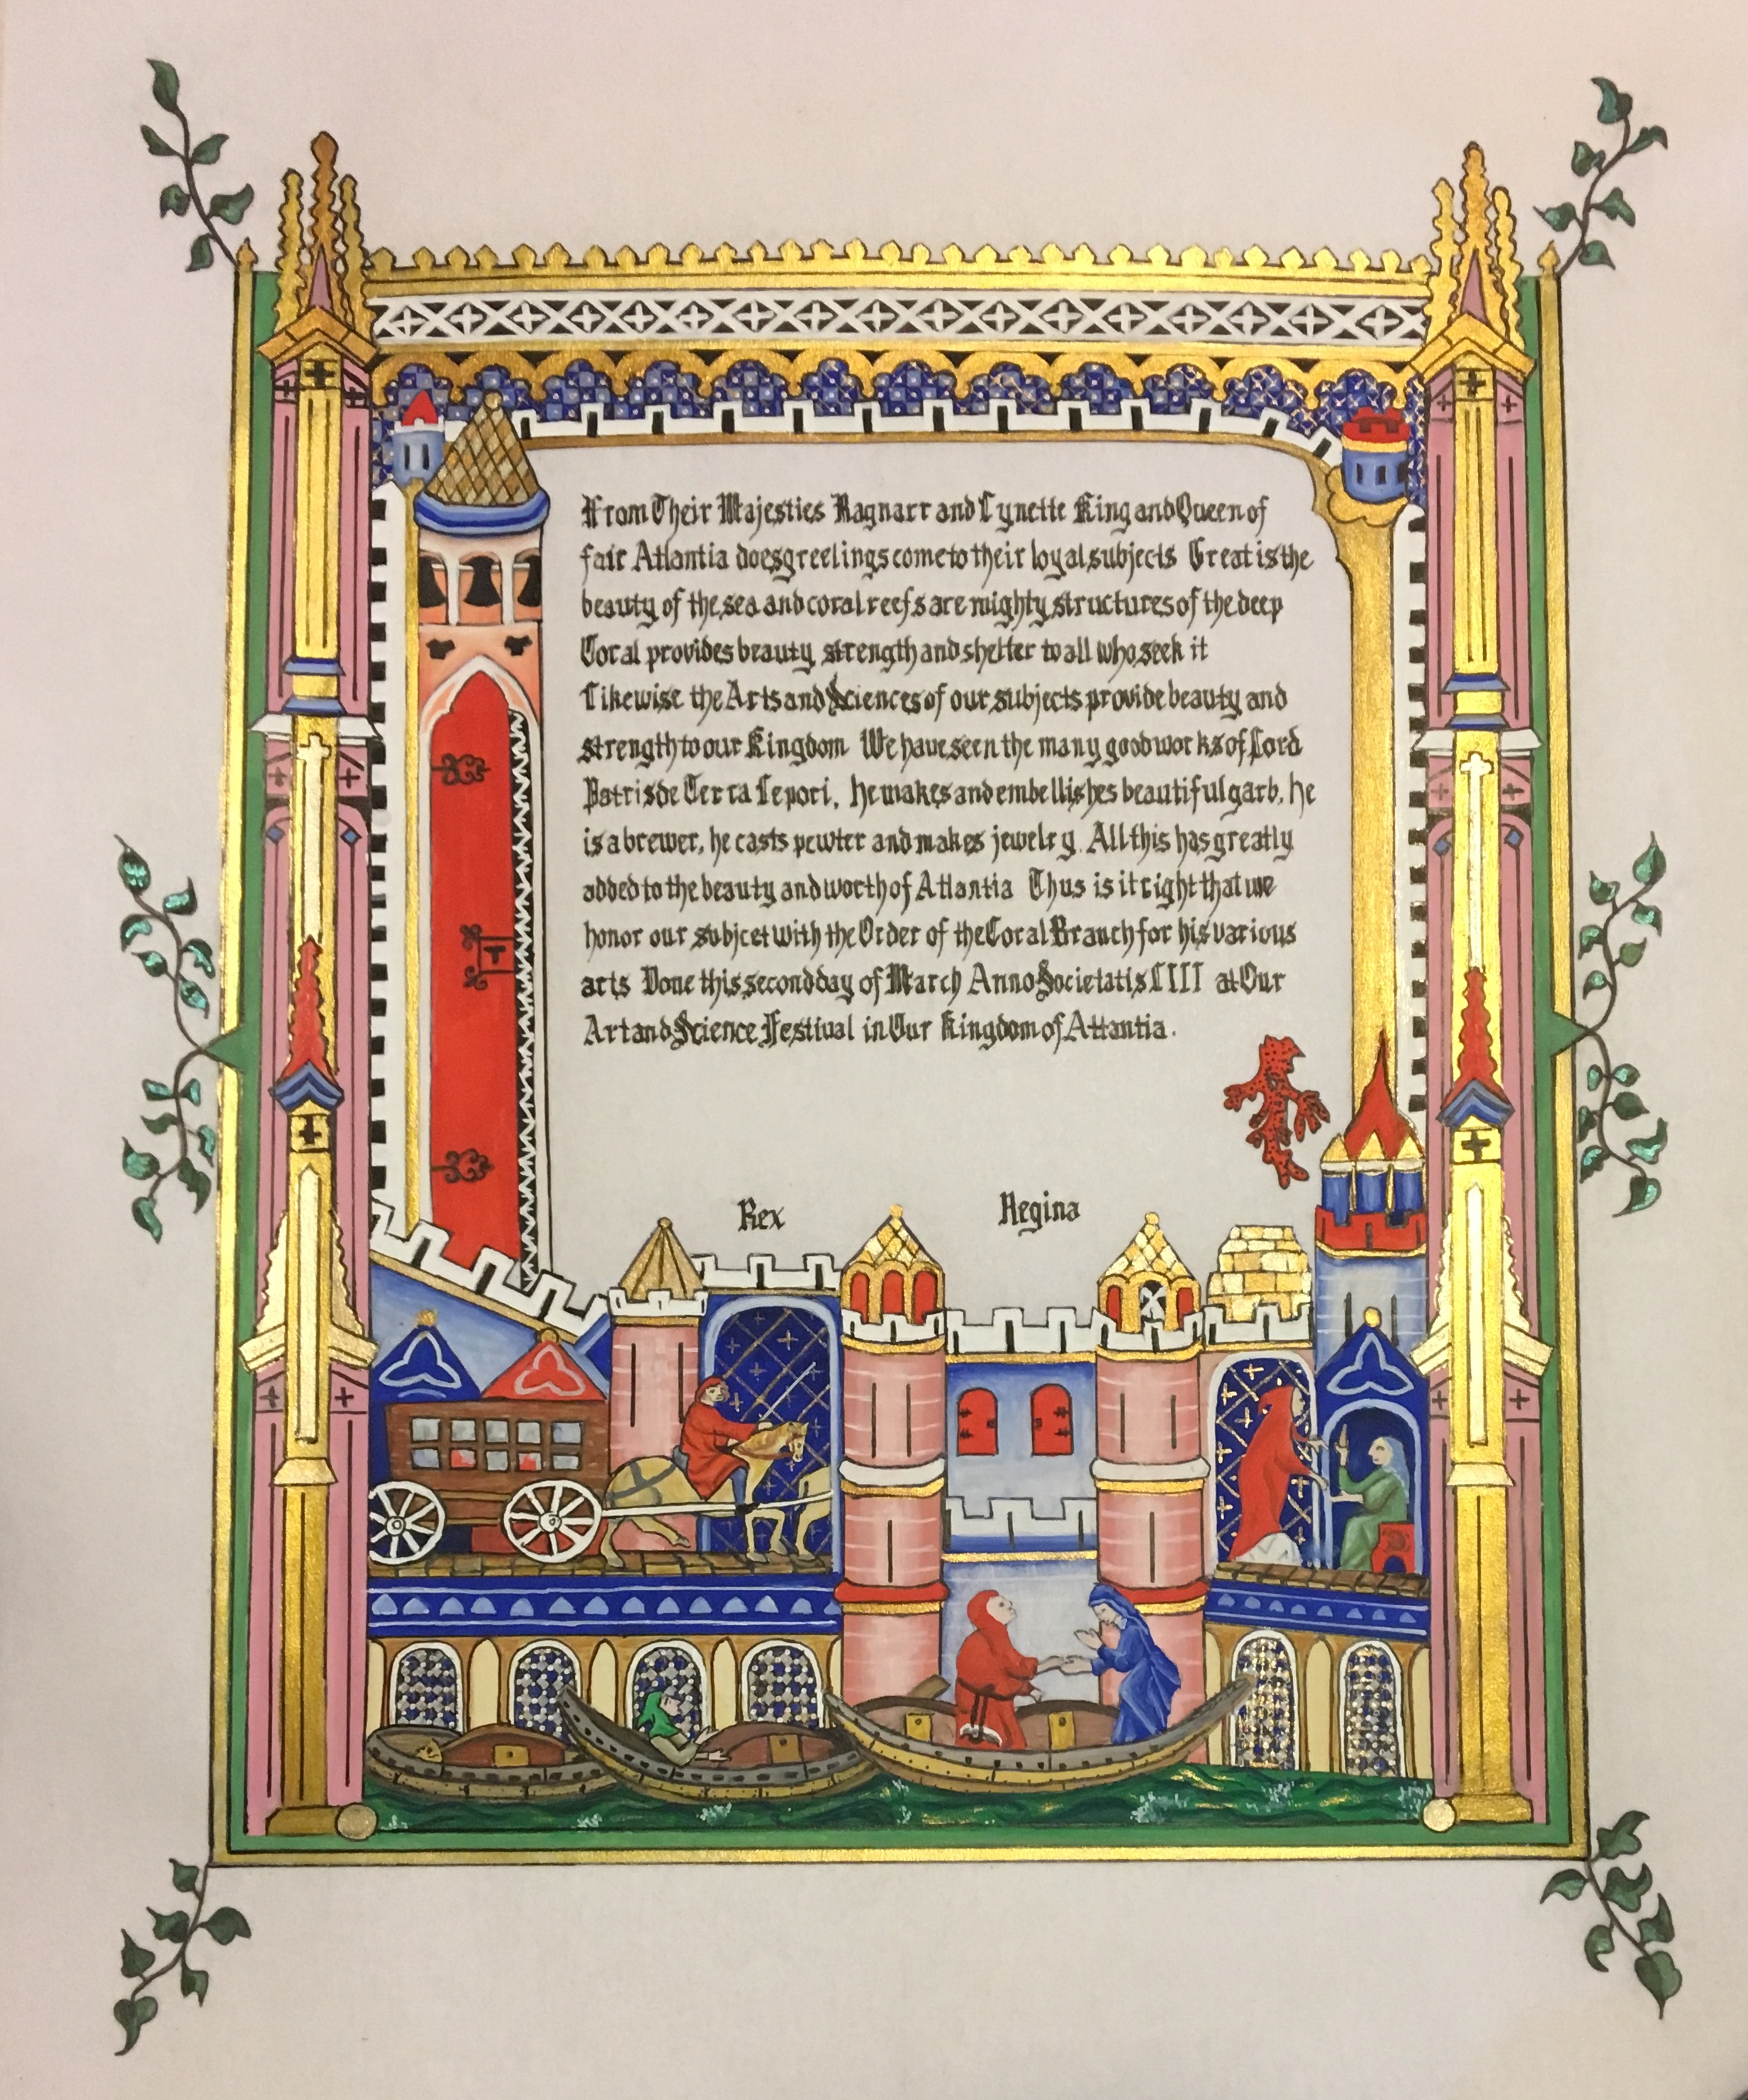 From Their Majesties Ragnarr and Lynette King and Queen of
fair Atlantia does greetings come to their loyal subjects Great is the
beauty of the sea and coral reefs are mighty structures of the deep
Coral provides beauty strength and shelter to all who seek it
Likewise the Arts and Sciences of our subjects provide beauty and
strength to our Kingdom We have seen the many good works of Lord
Patris de Terra Lepori, he makes and embellishes beautiful garb, he
is a brewer, he casts pewter and makes jewelry. All this has greatly
added to the beauty and worth of Atlantia Thus is it right that we
honor our subject with the Order of the Coral Branch for his various
arts Done this second day of March Anno Societatis LIII at Our
Art and Science Festival in Our Kingdom of Atlantia.
Rex Regina